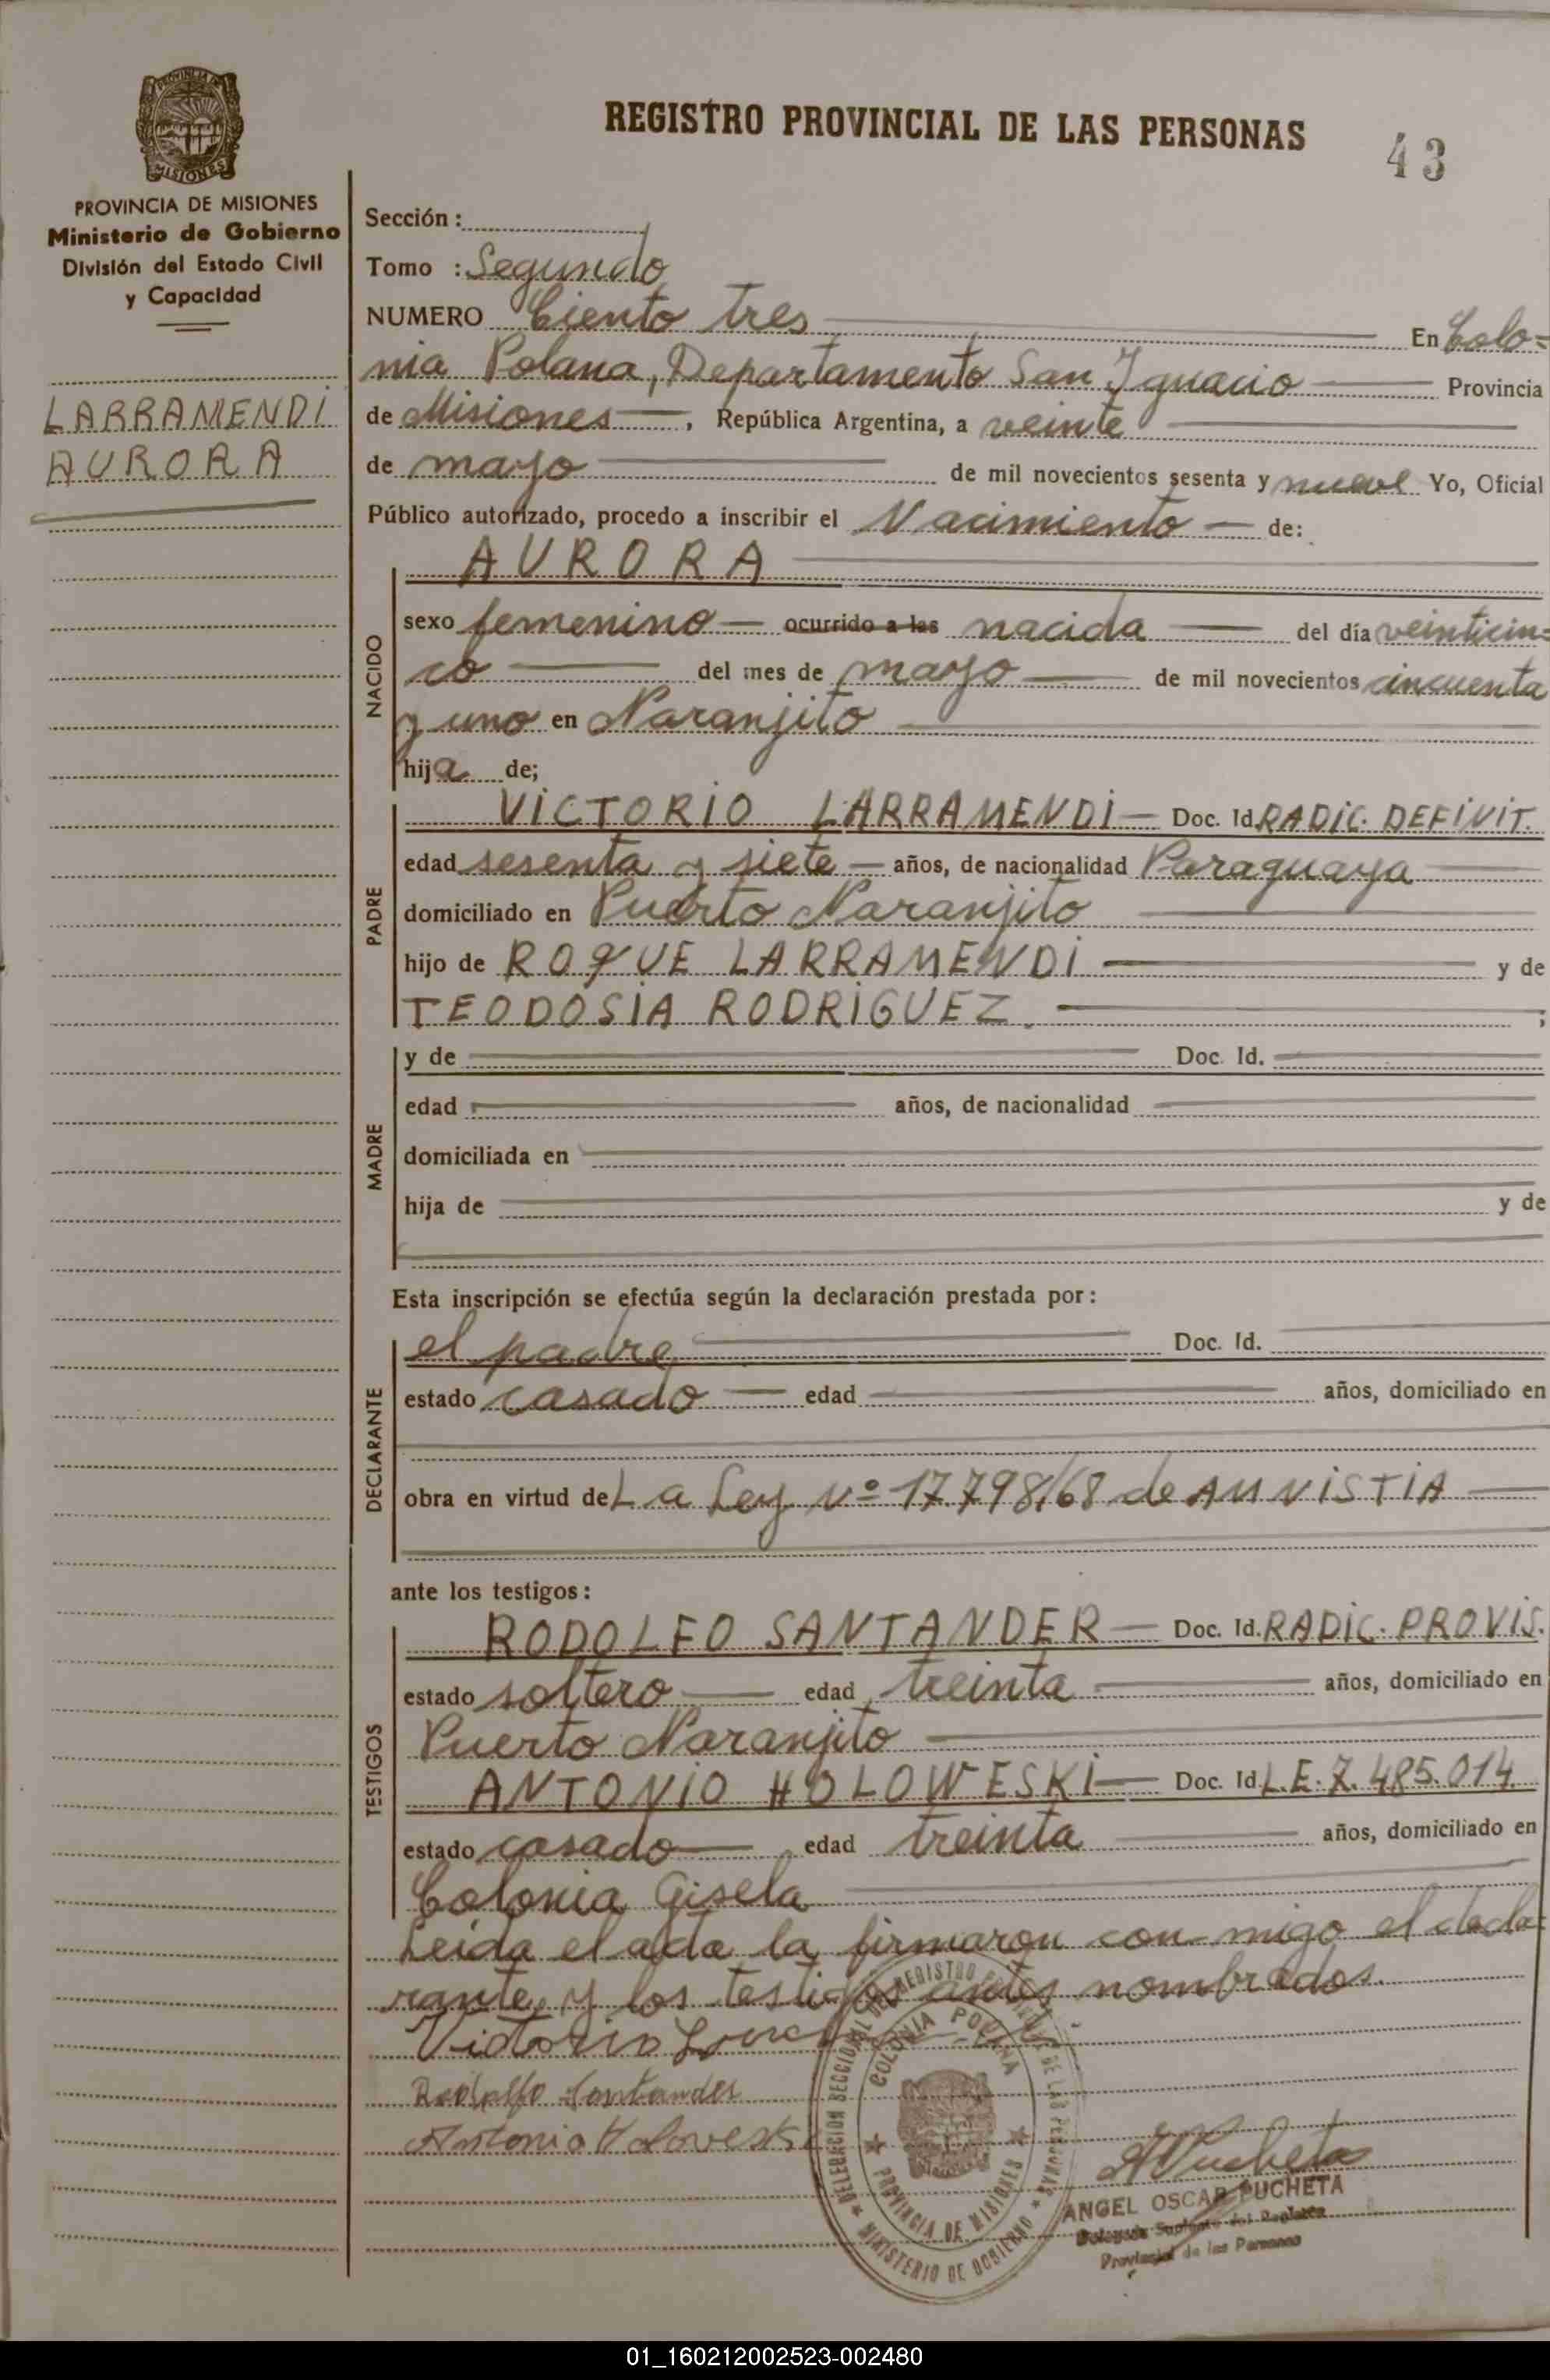 REGISTRO PROVINCIAL DE LAS PERSONAS
43
PROVINCIA DE MISIONES
Ministerio de Gobierno
División del Estado Civil
y Capacidad
LARRAMENDI
AURORA
Sección :
Tomo : Segundo
NUMERO Ciento tres En Colo=
nia Polana, Departamento San Ignacio Provincia
de Misiones , República Argentina, a veinte
de mayo de mil novecientos sesenta y nueve Yo, Oficial
Público autorizado, procedo a inscribir el Nacimiento de:
NACIDO
AURORA
sexo femenino ocurrido a las nacida del día veinticin=
co del mes de mayo de mil novecientos cincuenta
y uno en Naranjito
hija de;
PADRE
VICTORIO LARRAMENDI Doc. Id. RADIC. DEFINIT.
edad sesenta y siete años, de nacionalidad Paraguaya
domiciliado en Puerto Naranjito
hijo de ROQUE LARRAMENDI y de
TEODOSIA RODRIGUEZ. ;
MADRE
y de Doc. Id.
edad años, de nacionalidad
domiciliada en
hija de y de
Esta inscripción se efectúa según la declaración prestada por :
DECLARANTE
el padre Doc. Id.
estado casado edad años, domiciliado en
obra en virtud de La Ley Nº 17.798/68 de AMNISTIA
ante los testigos :
TESTIGOS
RODOLFO SANTANDER Doc. Id. RADIC. PROVIS.
estado soltero edad treinta años, domiciliado en
Puerto Naranjito
ANTONIO HOLOWESKI Doc. Id. L.E. 7.485.014
estado casado edad treinta años, domiciliado en
Colonia Gisela
Leida el acta la firmaron con migo el decla=
rante y los testigos antes nombrados.
Victorio
Rodolfo Santander
Antonio Holoweski
COLONIA POLANA
PROVINCIA DE MISIONES
MINISTERIO DE GOBIERNO
ANGEL OSCAR PUCHETA
Delegado Suplente del Registro
Provincial de las Personas
01_160212002523-002480